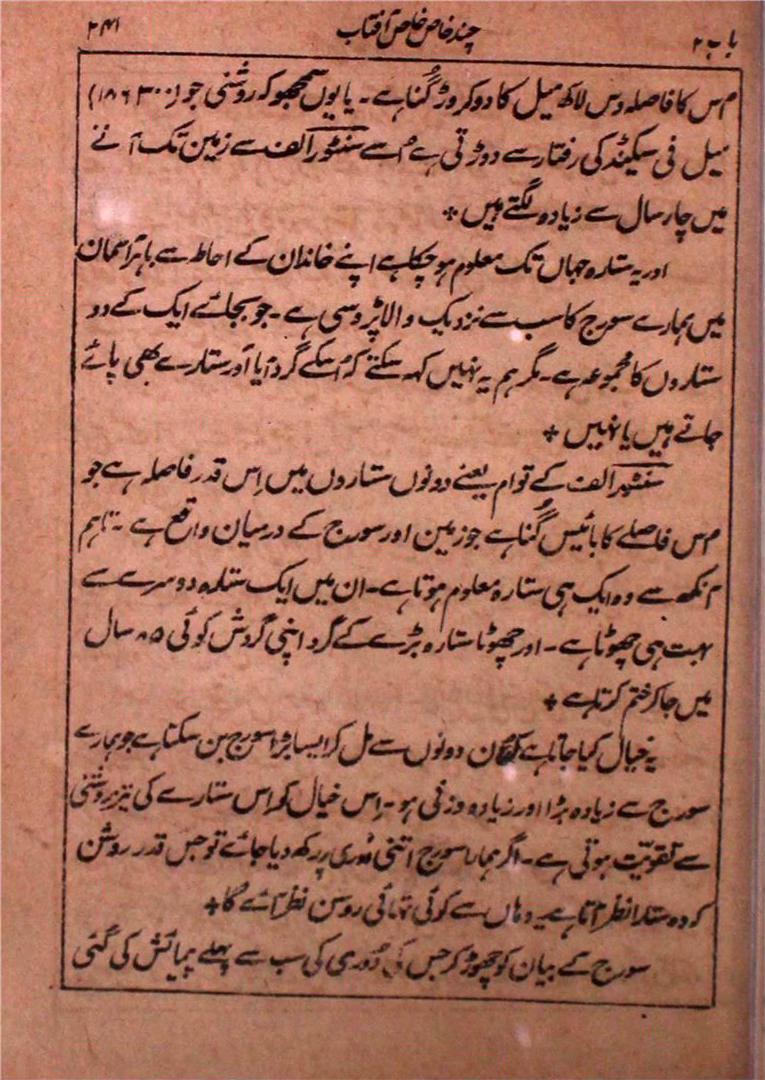 باب ۲ چند خاص خاص آفتاب ۲۴۱
اس کا فاصلہ دس لاکھ میل کا دو کروڑ گُنا ہے۔ یا یوں سمجھو کہ روشنی جو (۱۸۶۳۰۰)
میل فی سیکنڈ کی رفتار سے دوڑتی ہے اُسے سنٹور الف سے زمین تک آنے
میں چار سال سے زیادہ لگتے ہیں *
اور یہ ستارہ جہاں تک معلوم ہو چکا ہے اپنے خاندان کے احاطہ سے باہر آسمان
میں ہمارے سورج کا سب سے نزدیک والا پڑوسی ہے۔ جو بجائے ایک کے دو
ستاروں کا مجموعہ ہے۔ مگر ہم یہ نہیں کہہ سکتے کہ اسکے گرد آیا اَور ستارے بھی پائے
جاتے ہیں یا نہیں *
سنٹور الف کے توام یعنے دونوں ستاروں میں اِس قدر فاصلہ ہے جو
اس فاصلے کا بائیس گُنا ہے جو زمین اور سورج کے درمیان واقع ہے۔ تاہم
آنکھ سے وہ ایک ہی ستارہ معلوم ہوتا ہے۔ ان میں ایک ستارہ دوسرے سے
بہت ہی چھوٹا ہے۔ اور چھوٹا ستارہ بڑے کے گرد اپنی گردش کوئی ۸۵ سال
میں جا کر ختم کرتا ہے *
یہ خیال کیا جاتا ہے کہ ان دونوں سے مل کر ایسا بڑا سورج بن سکتا ہے جو ہمارے
سورج سے زیادہ بڑا اور زیادہ وزنی ہو۔ اِس خیال کو اِس ستارے کی تیز روشنی
سے تقویّت ہوتی ہے۔ اگر ہمارا سورج اتنی دُوری پر رکھ دیا جائے تو جس قدر روشن
کہ وہ ستارا نظر آتا ہے یہ وہاں سے کوئی تہائی روشن نظر آئے گا *
سورج کے بیان کو چھوڑ کر جس کی دُوری کی سب سے پہلے پیمائش کی گئی